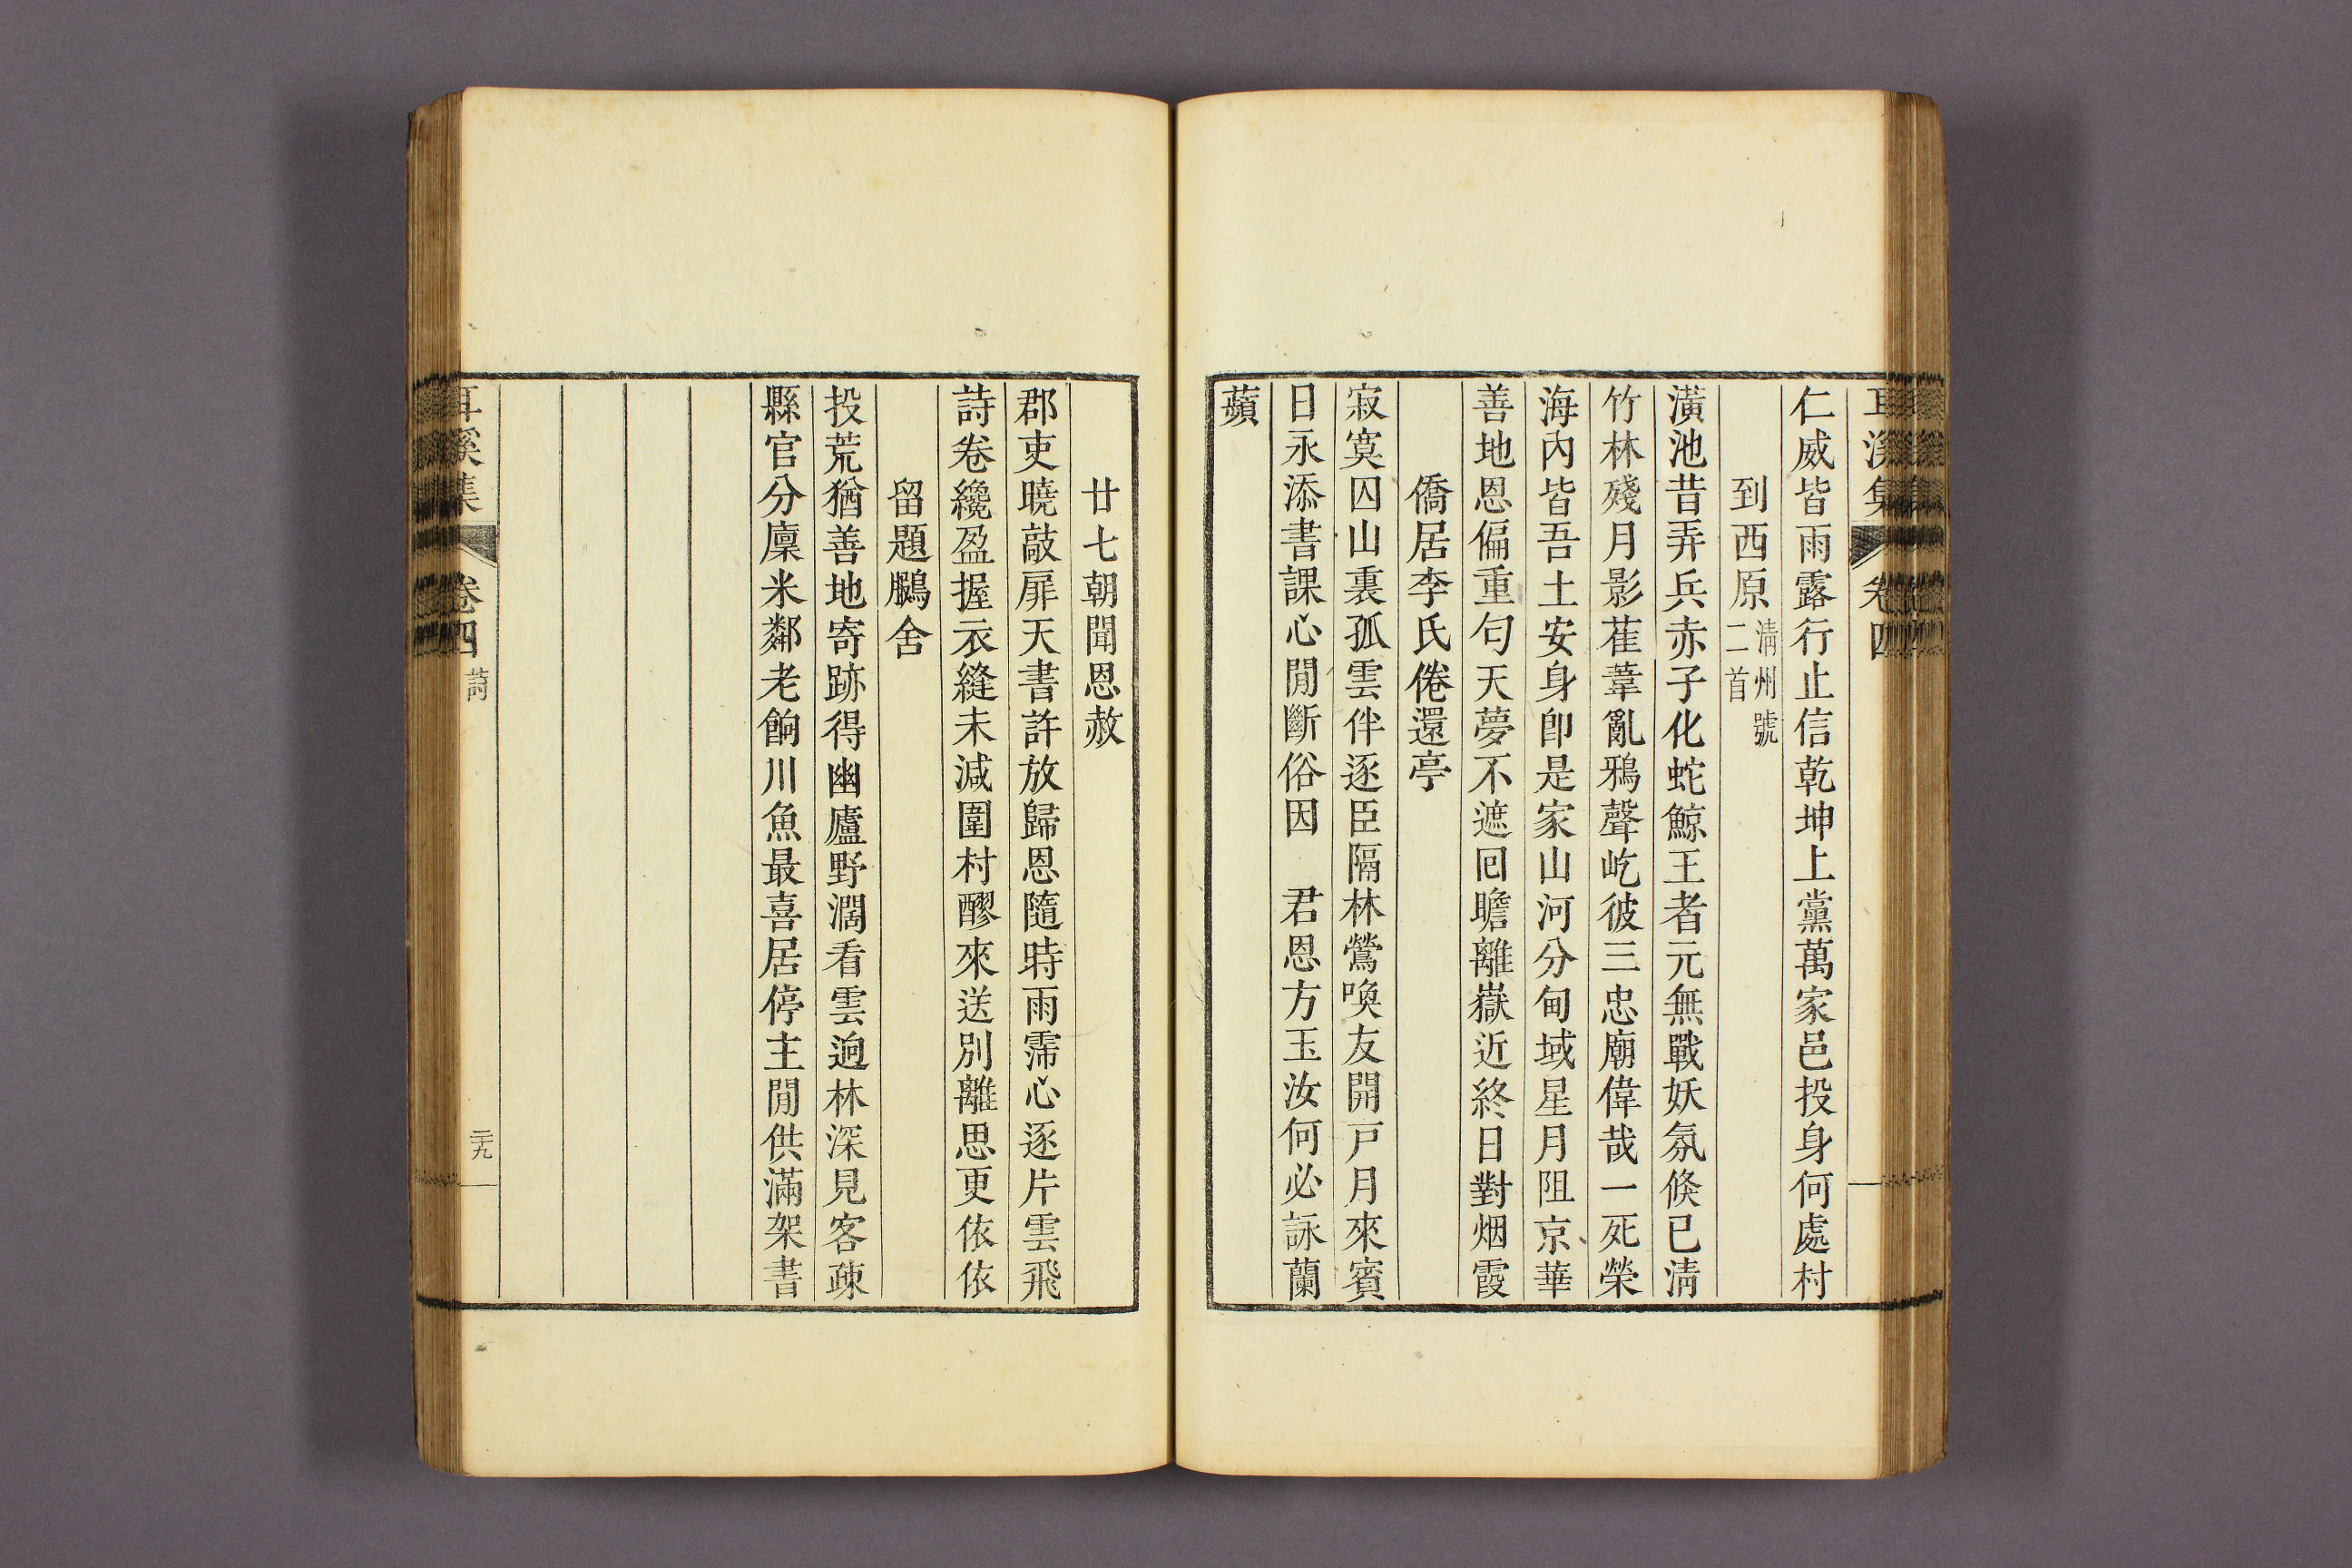 耳溪集
卷四
仁威皆雨露行止信乾坤上黨萬家邑投身何處村
到西原清州號二首
潢池昔弄兵赤子化蛇鯨王者元無戰妖氛倏已淸
竹林殘月影萑葦亂鴉聲屹彼三忠廟偉哉一死榮
海內皆吾土安身卽是家山河分甸域星月阻京華
善地恩偏重匂天夢不遮囘瞻離嶽近終日對烟霞
僑居李氏倦還亭
寂寞囚山裏孤雲伴逐臣隔林鶯喚友開戸月來賓
日永添書課心閒斷俗因　君恩方玉汝何必詠蘭
蘋
廿七朝聞恩赦
郡吏曉敲扉天書許放歸恩隨時雨霈心逐片雲飛
詩卷纔盈握衣縫未減圍村醪來送別離思更依依
留題鵩舍
投荒猶善地寄跡得幽廬野濶看雲逈林深見客疎
縣官分廩米鄰老餉川魚最喜居停主閒供滿架書
耳溪集
卷四
詩
二十九